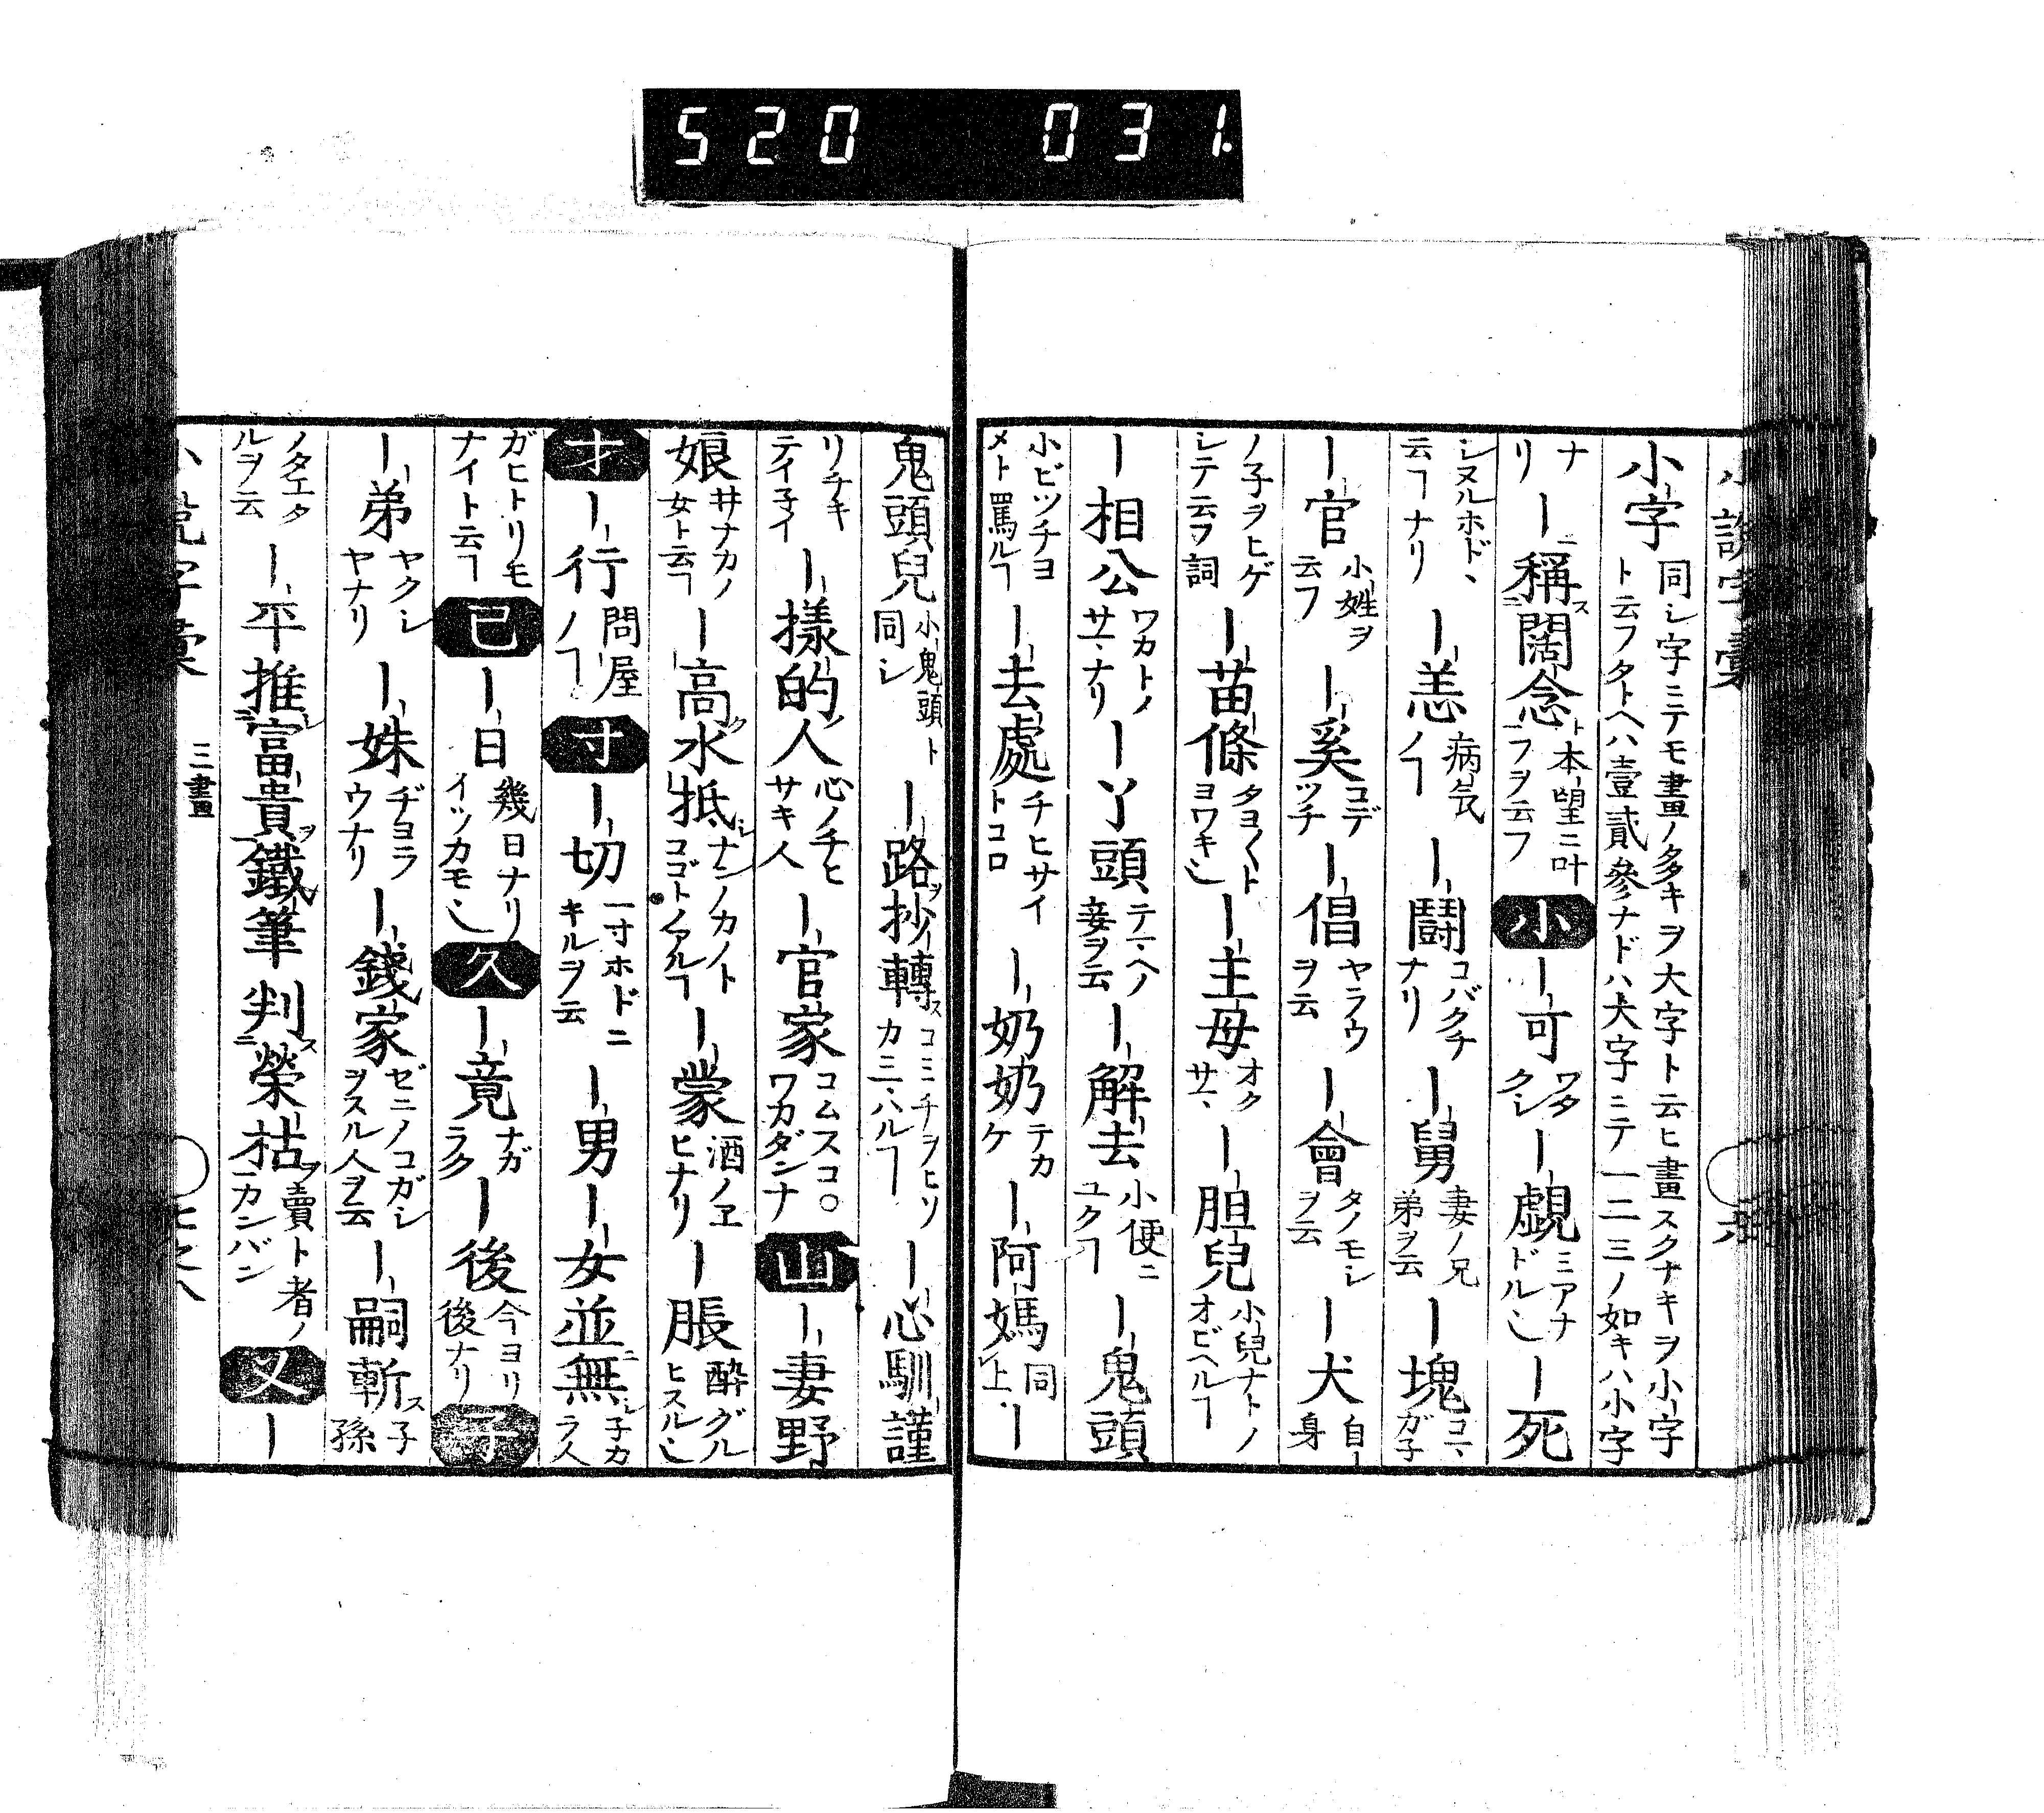 520 031.
小字 同シ字ニテモ畫ノ多キヲ大字ト云ヒ畫スクナキヲ小字ト云フタトヘハ壹貳參ナドハ大字ニテ一二三ノ如キハ小字
ナリ ー稱闊念 本望ニ叶フヲ云フ 小 ー可 ワタクシ ー覷 ミアナドル ー死
シヌルホド、云ヿナリ ー恙 病気ノヿ ー鬪 コバクチナリ ー舅 妻ノ兄弟ヲ云 ー塊 コニ、ガ子
ー官 小姓ヲ云フ ー奚 コデツチ ー倡 ヤラウヲ云 ー會 タノモシヲ云 ー犬 自身
ノ子ヲヒゲシテ云ヲ詞 ー苗條 タヨ〱トヨワキ ー主母 オクサマ ー胆兒 小兒ナトノオビヘルヿ
ー相公 ワカトノサマナリ ー丫頭 妾ヲ云 ー解去 小便ニユクヿ ー鬼頭
小ビツチヨメト罵ルヿ ー去處 チヒサイトコロ ー奶奶 テカケ ー阿媽 同上 ー
鬼頭兒 小鬼頭ト同シ ー路抄轉 コミチヲヒソカニマハルヿ ー心馴謹
リチキテイ子イ ー樣的人 心ノチヒサキ人 ー官家 コムスコ○ワカダンナ 山 ー妻野
娘 井ナカノ女ト云ヿ ー高水牴 ナンノカノトコゴトノアルヿ ー蒙 酒ノヱヒナリ ー脹 酔グルヒスル
才 ー行 問屋ノヿ 寸 ー切 一寸ホドニキルヲ云 ー男ー女並無 子カラ人
ガヒトリモナイト云ヿ 已 ー日 幾日ナリイツカモ 久 ー竟 ナガラク ー後 今ヨリ後ナリ 子
ー弟 ヤクシヤナリ ー姝 ヂヨラウナリ ー錢家 ゼニノコガシヲスル人ヲ云 ー嗣斬 子孫
ノタエタルヲ云 ー平推富貴鐵筆判榮枯 賣ト者ノカンバン 又 ー
三畫